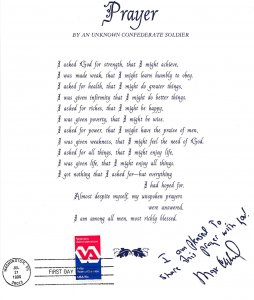 Prayer
BY AN UNKNOWN CONFEDERATE SOLDIER
I asked God for strength, that I might achieve,
I was made weak, that I might learn humbly to obey.
I asked for health, that I might do greater things.
I was given infirmity that I might do better things.
I asked for riches, that I might be happy,
I was given poverty, that I might be wise.
I asked for power, that I might have the praise of men,
I was given weakness, that I might feel the need of God.
I asked for all things, that I might enjoy life,
I was given life, that I might enjoy all things.
I got nothing that I asked for–but everything
I had hoped for.
Almost despite myself, my unspoken prayers
were answered.
I am among all men, most richly blessed.
I am pleased to
share this prayer with you!
WASHINGTON,
JUL
21
1980
FIRST DAY
VA